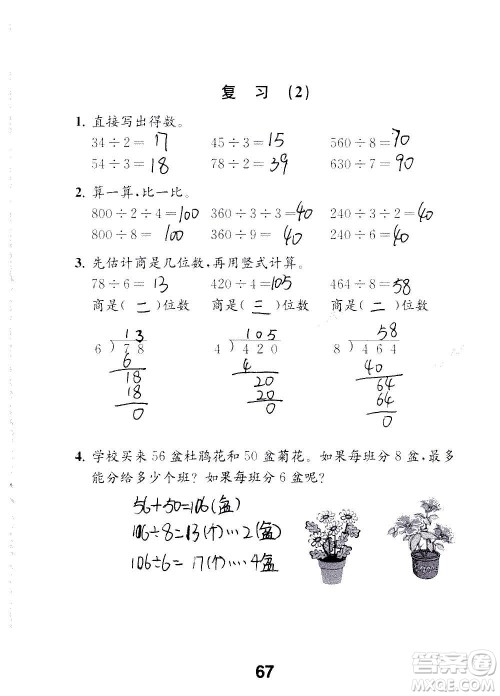 复 习 (2)
1. 直接写出得数。
34÷2=17 45÷3=15 560÷8=70
54÷3=18 78÷2=39 630÷7=90
2. 算一算,比一比。
800÷2÷4=100 360÷3÷3=40 240÷3÷2=40
800÷8=100 360÷9=40 240÷6=40
3. 先估计商是几位数,再用竖式计算。
78÷6=13 420÷4=105 464÷8=58
商是(二)位数 商是(三)位数 商是(二)位数
13 105 58
6)78 4)420 8)464
6 4 40
18 20 64
18 20 64
0 0 0
4. 学校买来 56 盆杜鹃花和 50 盆菊花。如果每班分 8 盆,最多
能分给多少个班?如果每班分 6 盆呢?
56+50=106(盆)
106÷8=13(个)…2(盆)
106÷6=17(个)…4盆
67
答案圈
MXQE.COM